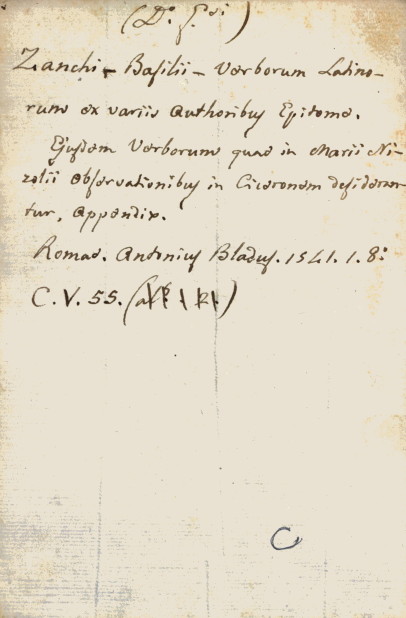 (D.
Zanchi - Basilii - Verborum Latino-
rum ex variis Authoribus Epitome.
Ejusdem Verborum quae in Marii Ni-
zolii Observationibus in Ciceronem desideran-
tur, Appendix.
Romae. Antonius Bladus. 1541. 1. 8:
C. V. 55.
C